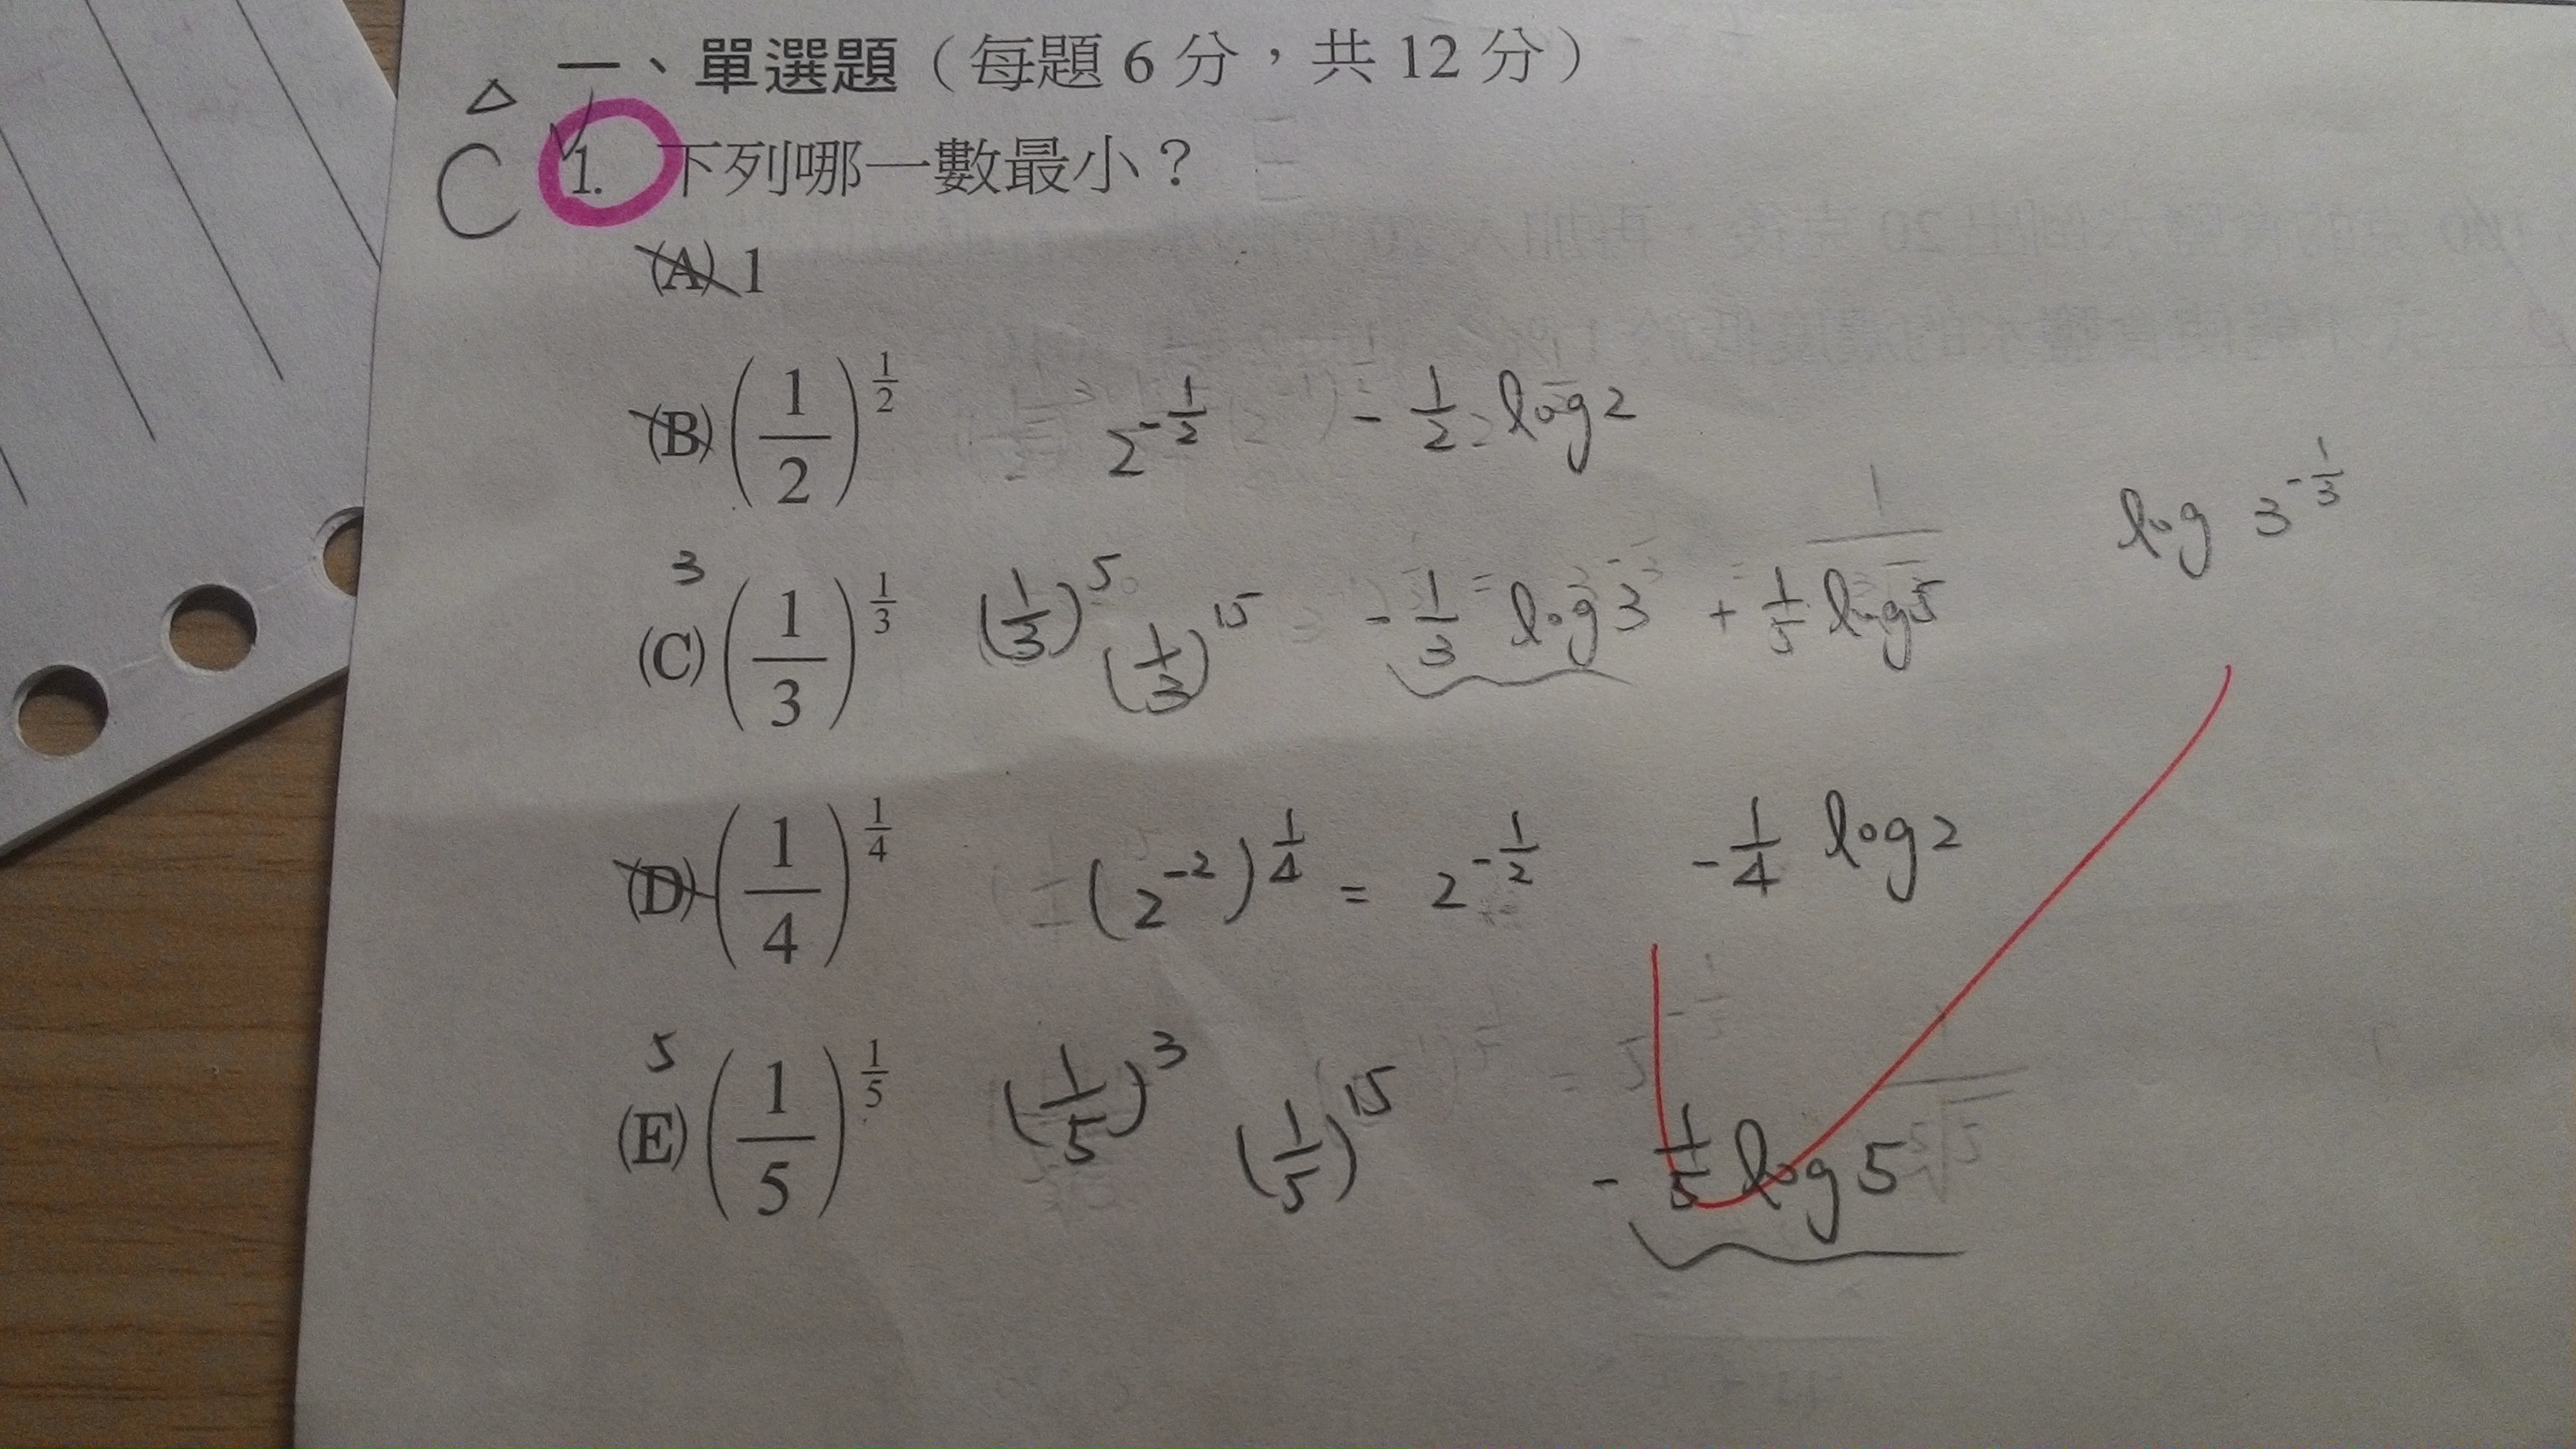 一、單選題（每題 6 分，共 12 分）
△
C 1. 下列哪一數最小？
(A) 1
(B) (1/2)^(1/2) 2^(-1/2) -1/2 log2
log 3^(-1/3)
3
(C) (1/3)^(1/3) (1/3)^5 (1/3)^15 -1/3 log3 + 1/5 log5
(D) (1/4)^(1/4) (2^(-2))^(1/4) = 2^(-1/2) -1/4 log2
5
(E) (1/5)^(1/5) (1/5)^3 (1/5)^15 -1/5 log5